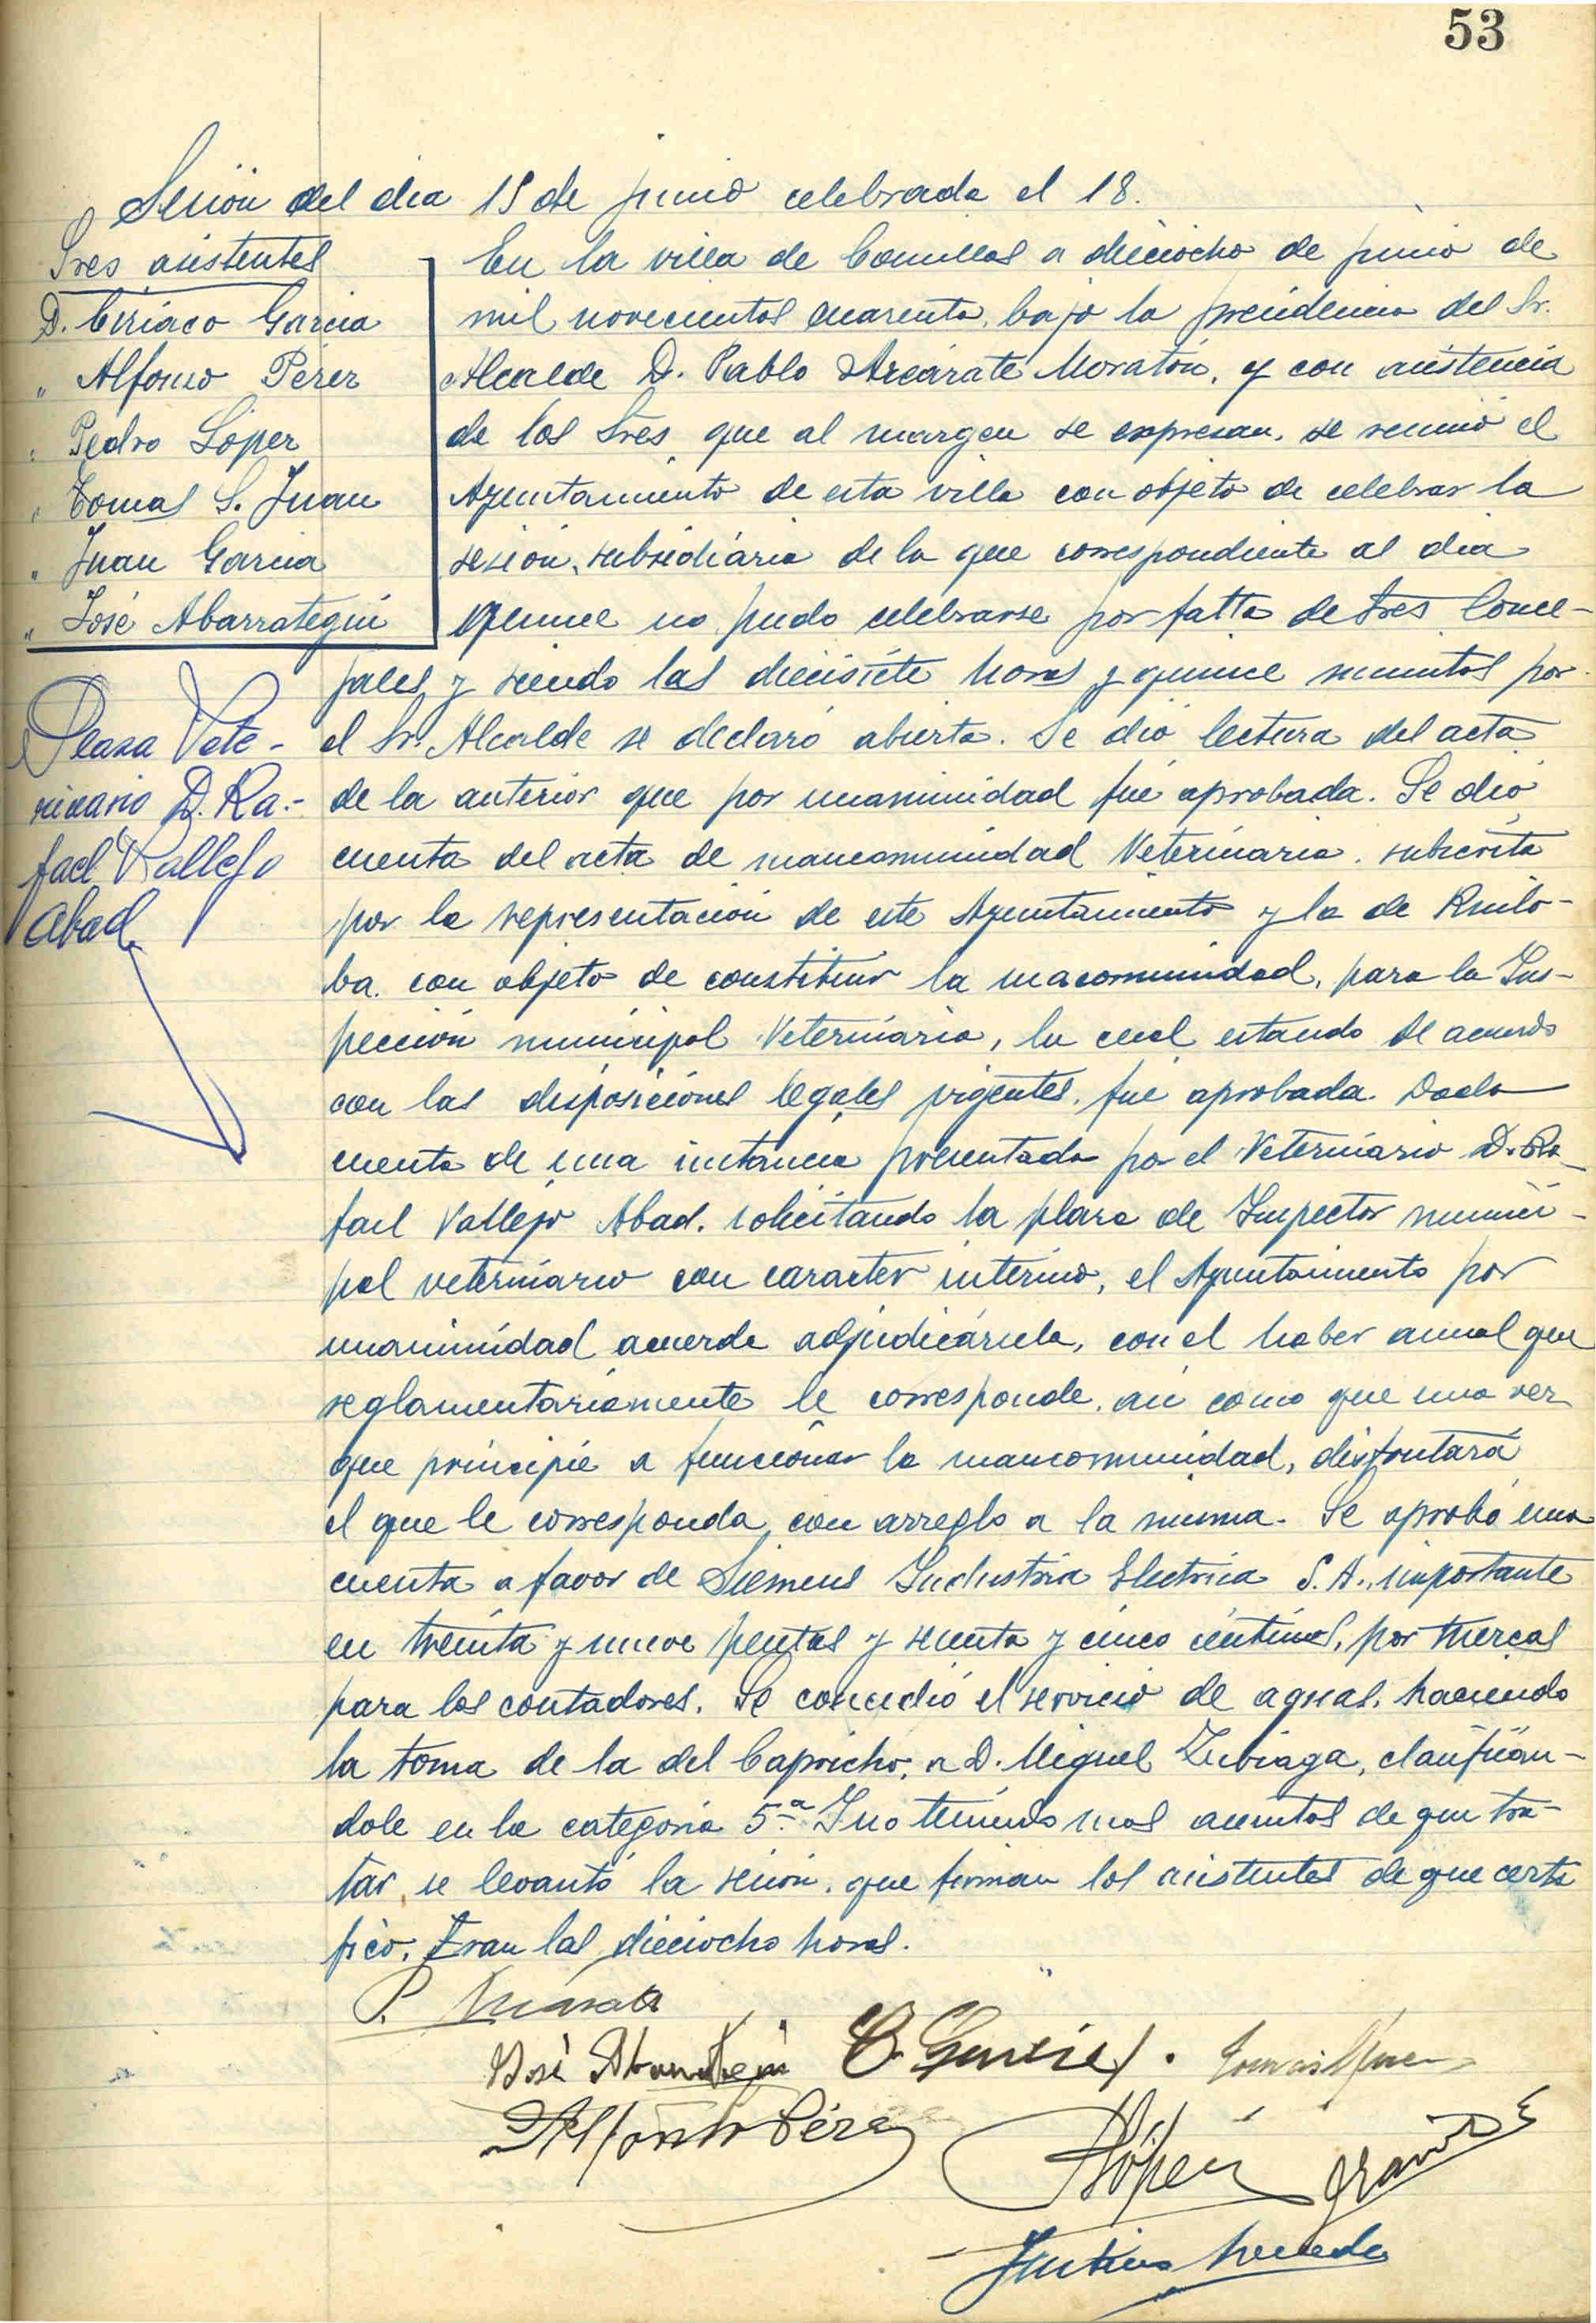 53
Sesión del dia 15 de junio celebrada el 18.
Sres asistentes
D. Ciriaco Garcia
" Alfonso Pérez
" Pedro López
" Tomas S. Juan
" Juan Garcia
" José Abarrategui
Plaza Vete-
rinario D. Ra-
fael Vallejo
Abad
En la villa de Comillas a dieciocho de junio de
mil novecientos cuarenta, bajo la presidencia del Sr.
Alcalde D. Pablo Azcárate Moratón, y con asistencia
de los Sres que al margen se expresan, se reunió el
Ayuntamiento de esta villa con objeto de celebrar la
sesion, subsidiaria de la que correspondiente al dia
quince no pudo celebrarse por falta de tres Conce-
jales, y siendo las diecisiete horas y quince minutos por
el Sr. Alcalde se declaró abierta. Se dió lectura del acta
de la anterior que por unanimidad fué aprobada. Se dió
cuenta del acta de mancomunidad Veterinaria, subcrita
por la representación de este Ayuntamiento y la de Ruilo-
ba, con objeto de constituir la macomunidad, para la Ins-
pección municipal Veterinaria, la cual estando de acuerdo
con las disposiciones legales vigentes, fué aprobada. Dada
cuenta de una instancia presentada por el Veterinario D. Ra-
fael Vallejo Abad, solicitando la plaza de Inspector munici-
pal veterinario con caracter interino, el Ayuntamiento por
unanimidad acuerda adjudicársela, con el haber anual que
reglamentariamente le corresponde, asi como que una vez
que principie a funcionar la mancomunidad, disfrutará
el que le corresponda, con arreglo a la misma. Se aprobó una
cuenta a favor de Siemens Industria Electrica S.A., importante
en treinta y nueve pesetas y sesenta y cinco céntimos, por tuercas
para los contadores. Se concedió el servicio de aguas, haciendo
la toma de la del Capricho, a D. Miguel Zubiaga, clasificán-
dole en la categoria 5ª. Y no teniendo mas asuntos de que tra-
tar, se levantó la sesión, que firman los asistentes de que certi
fico. Eran las dieciocho horas.
P. Azcárate
José Abarrategui C. Garcia Tomas S Juan
Alfonso Pérez
P López